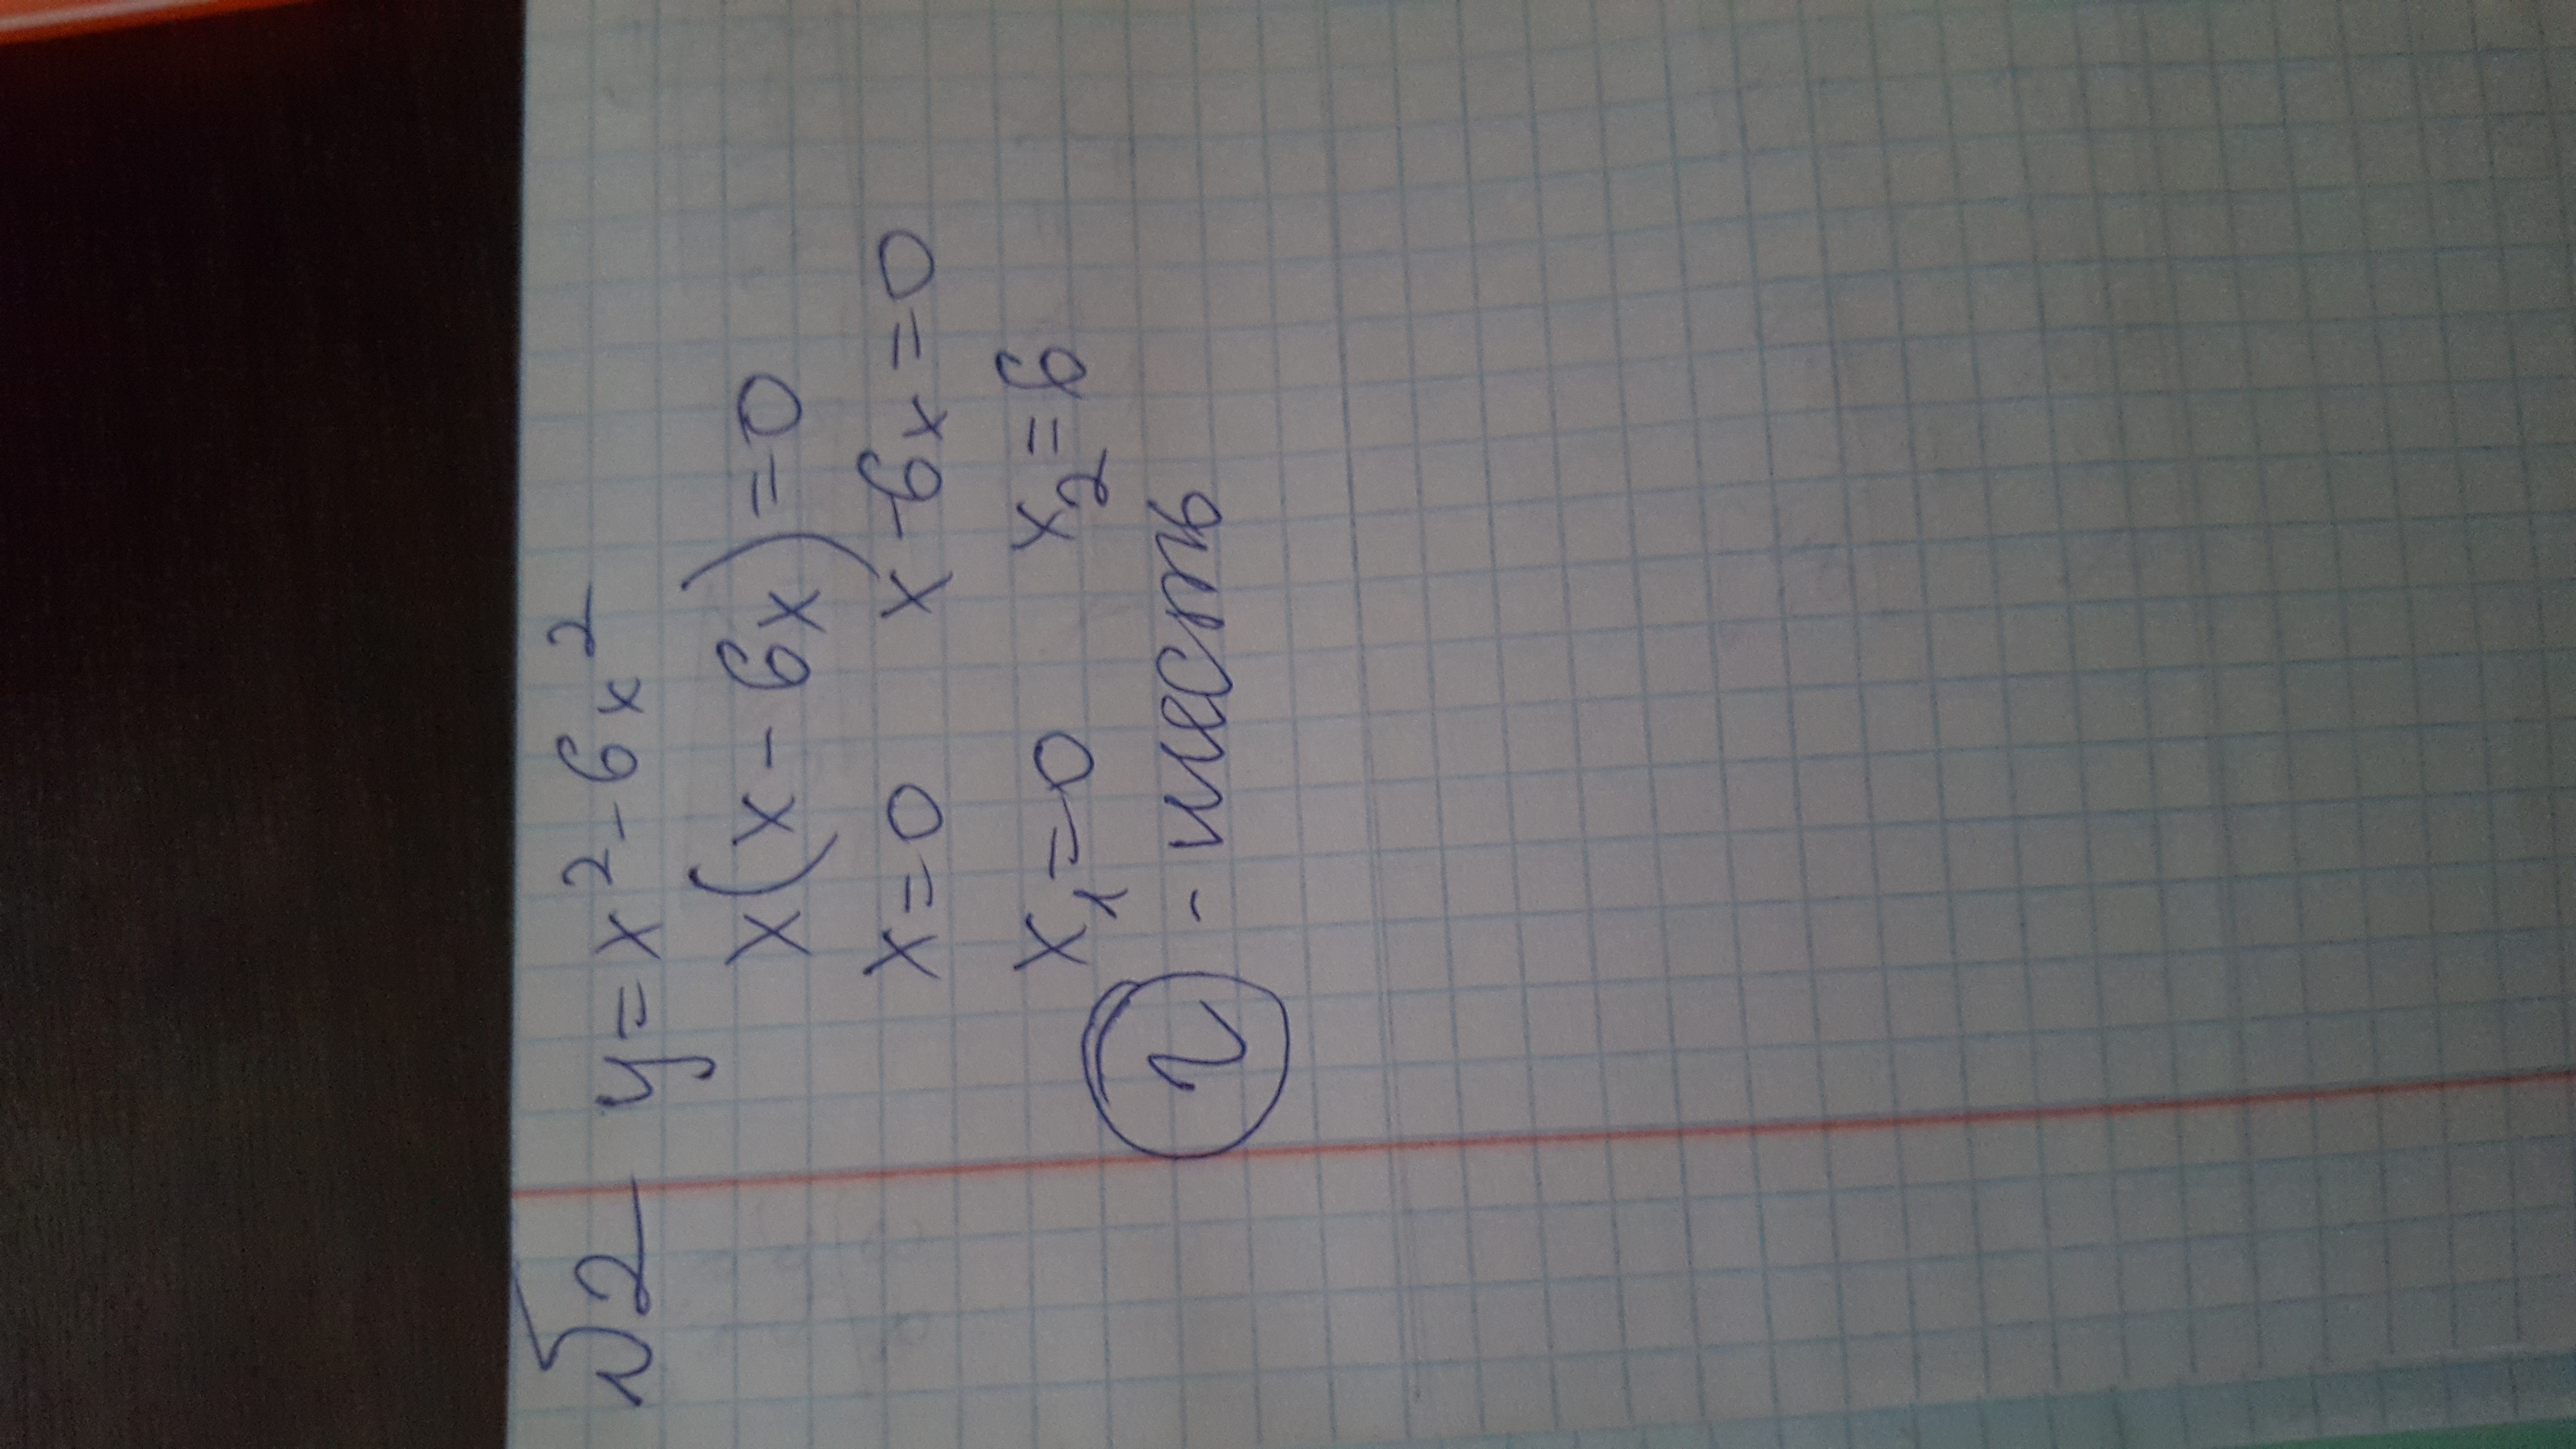 №2 y = x² - 6x²
x(x - 6x) = 0
x = 0 x - 6x = 0
x₁ = 0 x₂ = 6
г - шесть